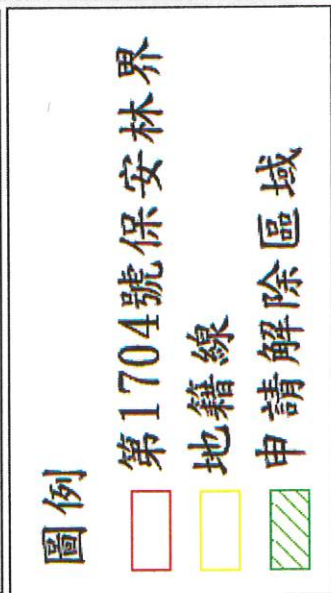 圖例
第1704號保安林界
地籍線
申請解除區域